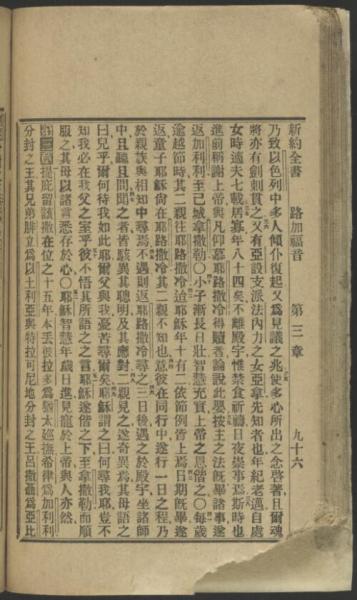 新約全書　路加福音　第三章　九十六
乃致以色列中多人傾仆復起又爲見議之兆使多心所出之念啓著且爾魂
將亦有劍刺貫之又有亞設支派法內力之女亞拿先知者也年紀老邁自處
女時適夫七載居寡年八十四矣不離殿宇惟禁食祈禱日夜崇事焉斯時也
進前稱謝上帝與凡仰慕耶路撒冷得贖者論說此嬰按主之法既畢諸事遂
返加利利至己城拿撒勒〇小子漸長日壯智慧充實上帝之恩偕之〇每歲
逾越節時其二親往耶路撒冷迨耶穌年十有二依節例皆上焉日期既畢遂
返童子耶穌尙在耶路撒冷其二親不知也意彼在同行中遂行一日之程乃
於親族與相知中尋焉不遇則返耶路撒冷尋之三日後遇之於殿宇坐諸師
中且聽且問聞之者皆駭異其聰明及其應對二親見之遂奇異焉其母語之
曰兒乎爾何待我如此耶爾父與我憂苦尋爾矣耶穌謂之曰何尋我耶豈不
知我必在我父之室乎彼不悟其所語之之言耶穌遂偕之下至拿撒勒而順
服之其母以諸言悉存於心〇耶穌智慧年歲日進見寵於上帝與人亦然
提庇留該撒在位之十五年本丟彼拉多爲猶太巡撫希律爲加利利
分封之王其兄弟腓立爲以土利亞與特拉可尼地分封之王呂撒聶爲亞比